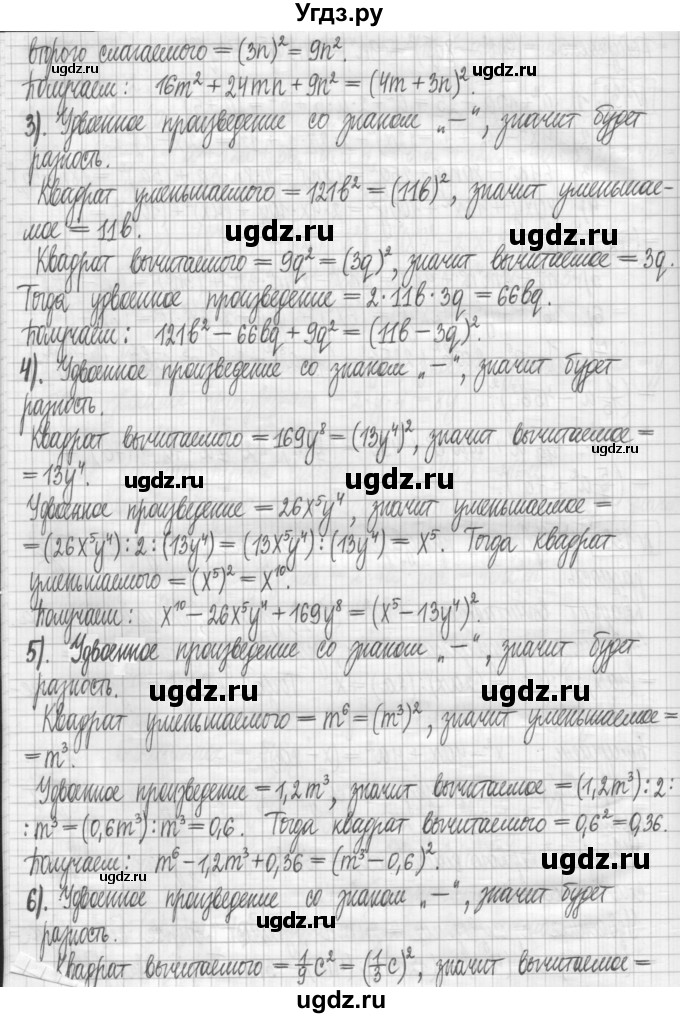 Угдз.ру
второго слагаемого = (3n)² = 9n².
Получаем: 16m² + 24mn + 9n² = (4m + 3n)².
ugdz.ru ugdz.ru
3). Удвоенное произведение со знаком „−“, значит будет
разность.
Квадрат уменьшаемого = 121b² = (11b)², значит уменьшае-
мое = 11b.
ugdz.ru ugdz.ru
Квадрат вычитаемого = 9q² = (3q)², значит вычитаемое = 3q.
Тогда удвоенное произведение = 2·11b·3q = 66bq.
Получаем: 121b² − 66bq + 9q² = (11b − 3q)².
ugdz.ru ugdz.ru
4). Удвоенное произведение со знаком „−“, значит будет
разность.
Квадрат вычитаемого = 169y⁸ = (13y⁴)², значит вычитаемое =
ugdz.ru
= 13y⁴.
ugdz.ru ugdz.ru
Удвоенное произведение = 26x⁵y⁴, значит уменьшаемое =
= (26x⁵y⁴):2:(13y⁴) = (13x⁵y⁴):(13y⁴) = x⁵. Тогда квадрат
уменьшаемого = (x⁵)² = x¹⁰.
ugdz.ru ugdz.ru
Получаем: x¹⁰ − 26x⁵y⁴ + 169y⁸ = (x⁵ − 13y⁴)².
5). Удвоенное произведение со знаком „−“, значит будет
разность.
ugdz.ru ugdz.ru
Квадрат уменьшаемого = m⁶ = (m³)², значит уменьшаемое =
= m³.
ugdz.ru
Удвоенное произведение = 1,2m³, значит вычитаемое = (1,2m³):2:
:m³ = (0,6m³):m³ = 0,6. Тогда квадрат вычитаемого = 0,6² = 0,36.
ugdz.ru
Получаем: m⁶ − 1,2m³ + 0,36 = (m³ − 0,6)².
ugdz.ru
6). Удвоенное произведение со знаком „−“, значит будет
ugdz.ru
разность.
Квадрат вычитаемого = 1/9 c² = (1/3 c)², значит вычитаемое =
ugdz.ru